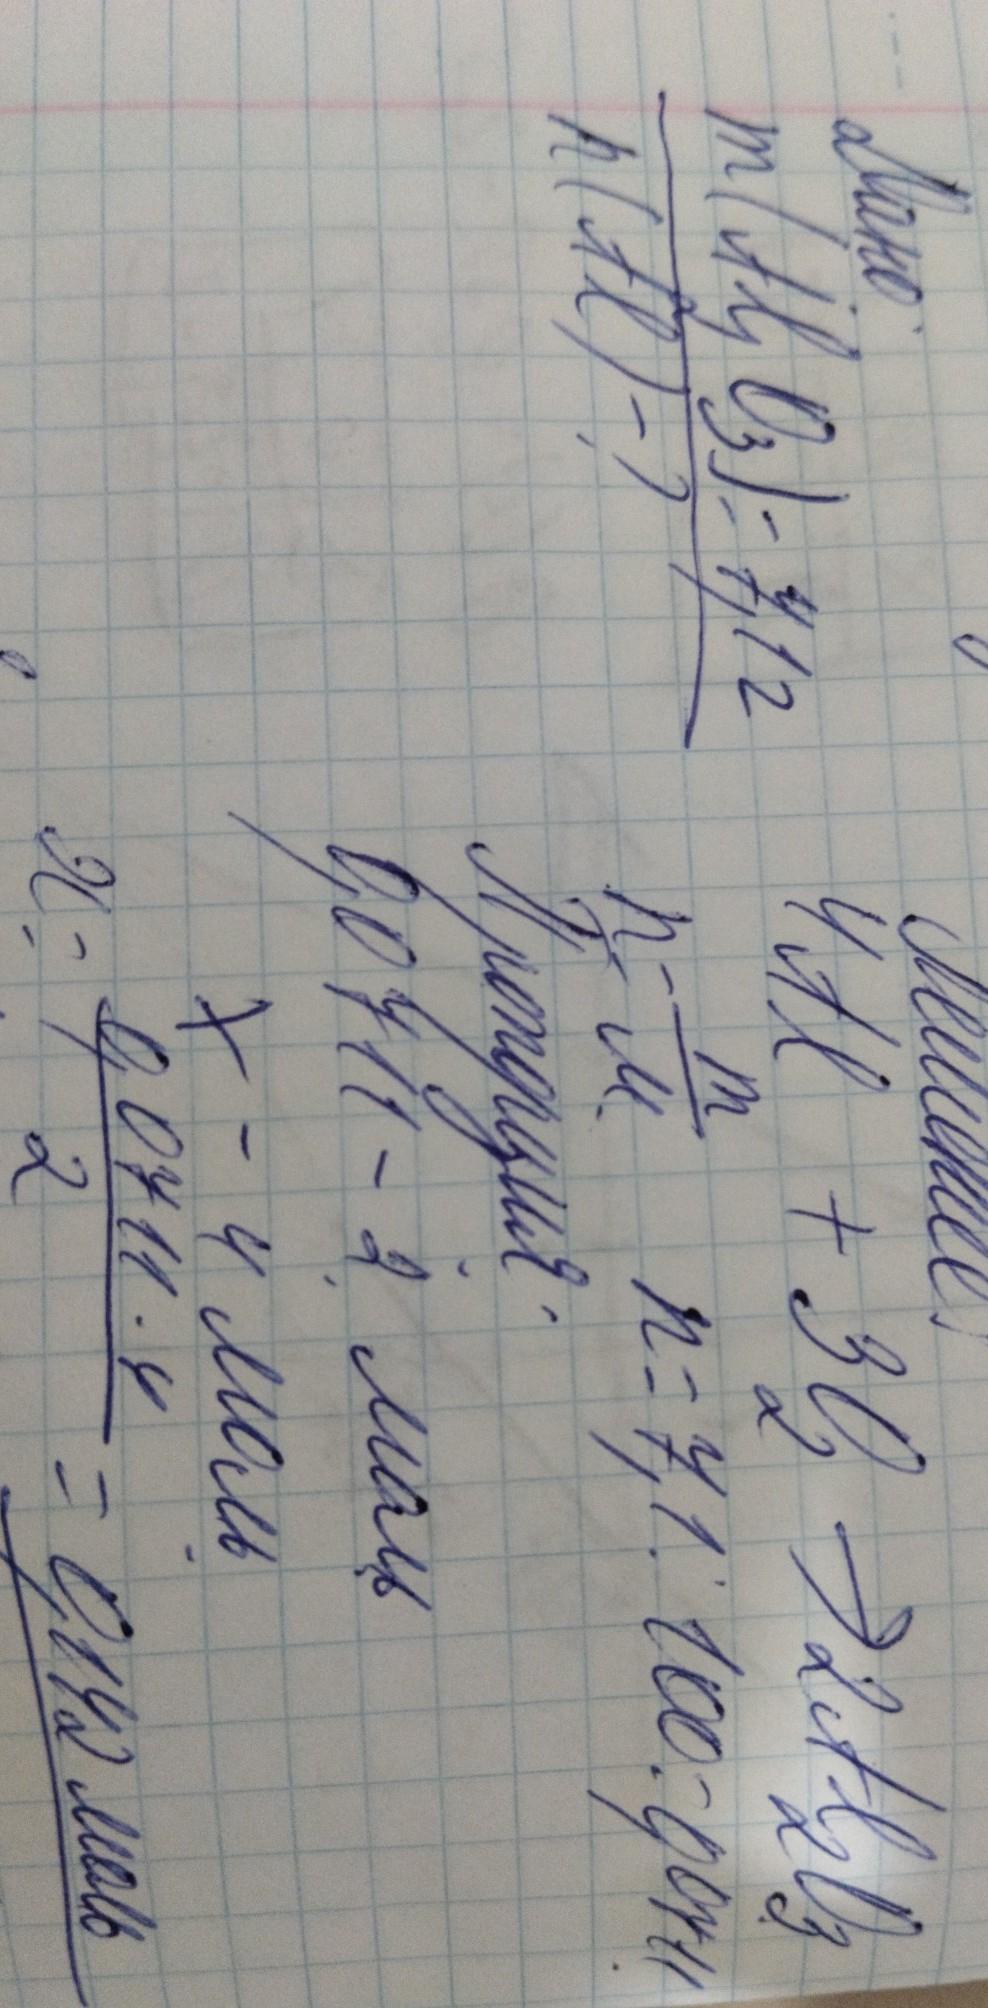 Дано:
m(Al2O3) = 7,1г
n(Al) - ?
Решение:
4Al + 3O2 → 2Al2O3
n = m/M n = 7,1 : 100 = 0,071
Пропорция:
0,071 - 2 моль
x - 4 моль
x = 0,071 · 4 / 2 = 0,142 моль